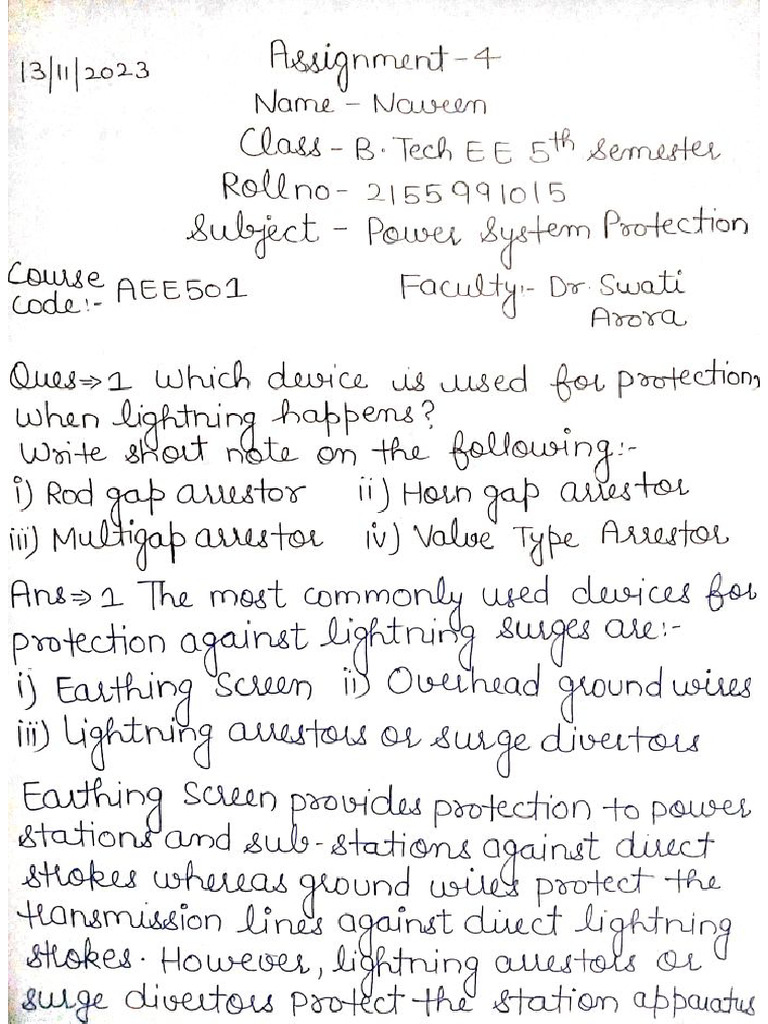 13/11/2023 Assignment-4
Name - Naveen
Class - B. Tech EE 5th semester
Rollno- 2155991015
Subject - Power System Protection
Course code:- AEE501 Faculty:- Dr. Swati Arora
Ques⇒1 Which device is used for protection,
when lightning happens?
Write short note on the following:-
i) Rod gap arrestor ii) Horn gap arrestor
iii) Multigap arrestor iv) Valve Type Arrestor
Ans⇒1 The most commonly used devices for
protection against lightning surges are:-
i) Earthing Screen ii) Overhead ground wires
iii) Lightning arrestors or surge divertors
Earthing Screen provides protection to power
stations and sub-stations against direct
strokes whereas ground wires protect the
transmission lines against direct lightning
strokes. However, lightning arrestors or
surge divertors protect the station apparatus